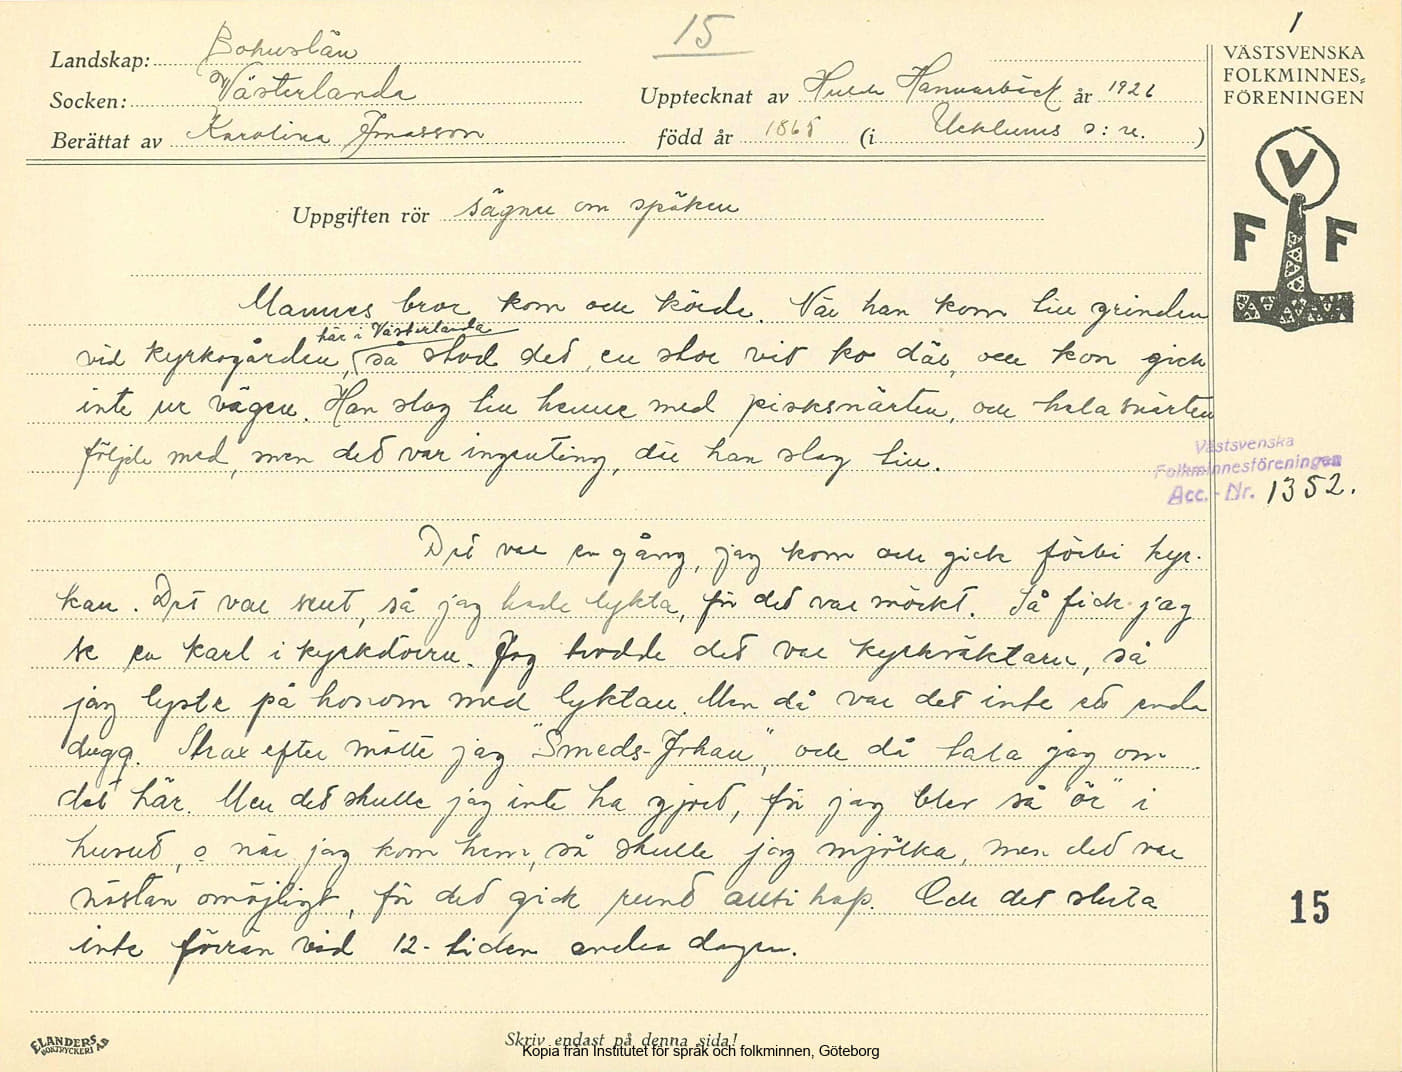 15
1
Landskap: Bohuslän
Socken: Västerlanda
Berättat av Karolina Jonasson
Upptecknat av Hulda Hammarbäck år 1926
född år 1865 (i Ucklums s:n. )
VÄSTSVENSKA
FOLKMINNES-
FÖRENINGEN
V
F F
Uppgiften rör sägner om spöken
Mannes bror kom och körde. När han kom till grinden
vid kyrkogården, här i Västerlanda så stod det en stor vit ko där, och kon gick
inte ur vägen. Han slog till henne med pisksnärten, och hela snärten
följde med, men det var ingenting, där han slog till.
Västsvenska
Folkminnesföreningen
Acc.-Nr. 1352.
Det var en gång, jag kom och gick förbi kyr-
kan. Det var sent, så jag hade lykta, för det var mörkt. Så fick jag
se en karl i kyrkdörrn. Jag trodde det var kyrkväktarn, så
jag lyste på honom med lyktan. Men då var det inte ett enda
dugg. Strax efter mötte jag "Smeds-Johan", och då tala jag om
det här. Men det skulle jag inte ha gjort, för jag blev så "ör" i
huvud, o när jag kom hem, så skulle jag mjölka, men det var
nästan omöjligt, för det gick runt allti hop. Och det sluta
inte förrän vid 12-tiden andra dagen.
15
ELANDERS
BOKTRYCKERI AB
Skriv endast på denna sida!
Kopia från Institutet för språk och folkminnen, Göteborg